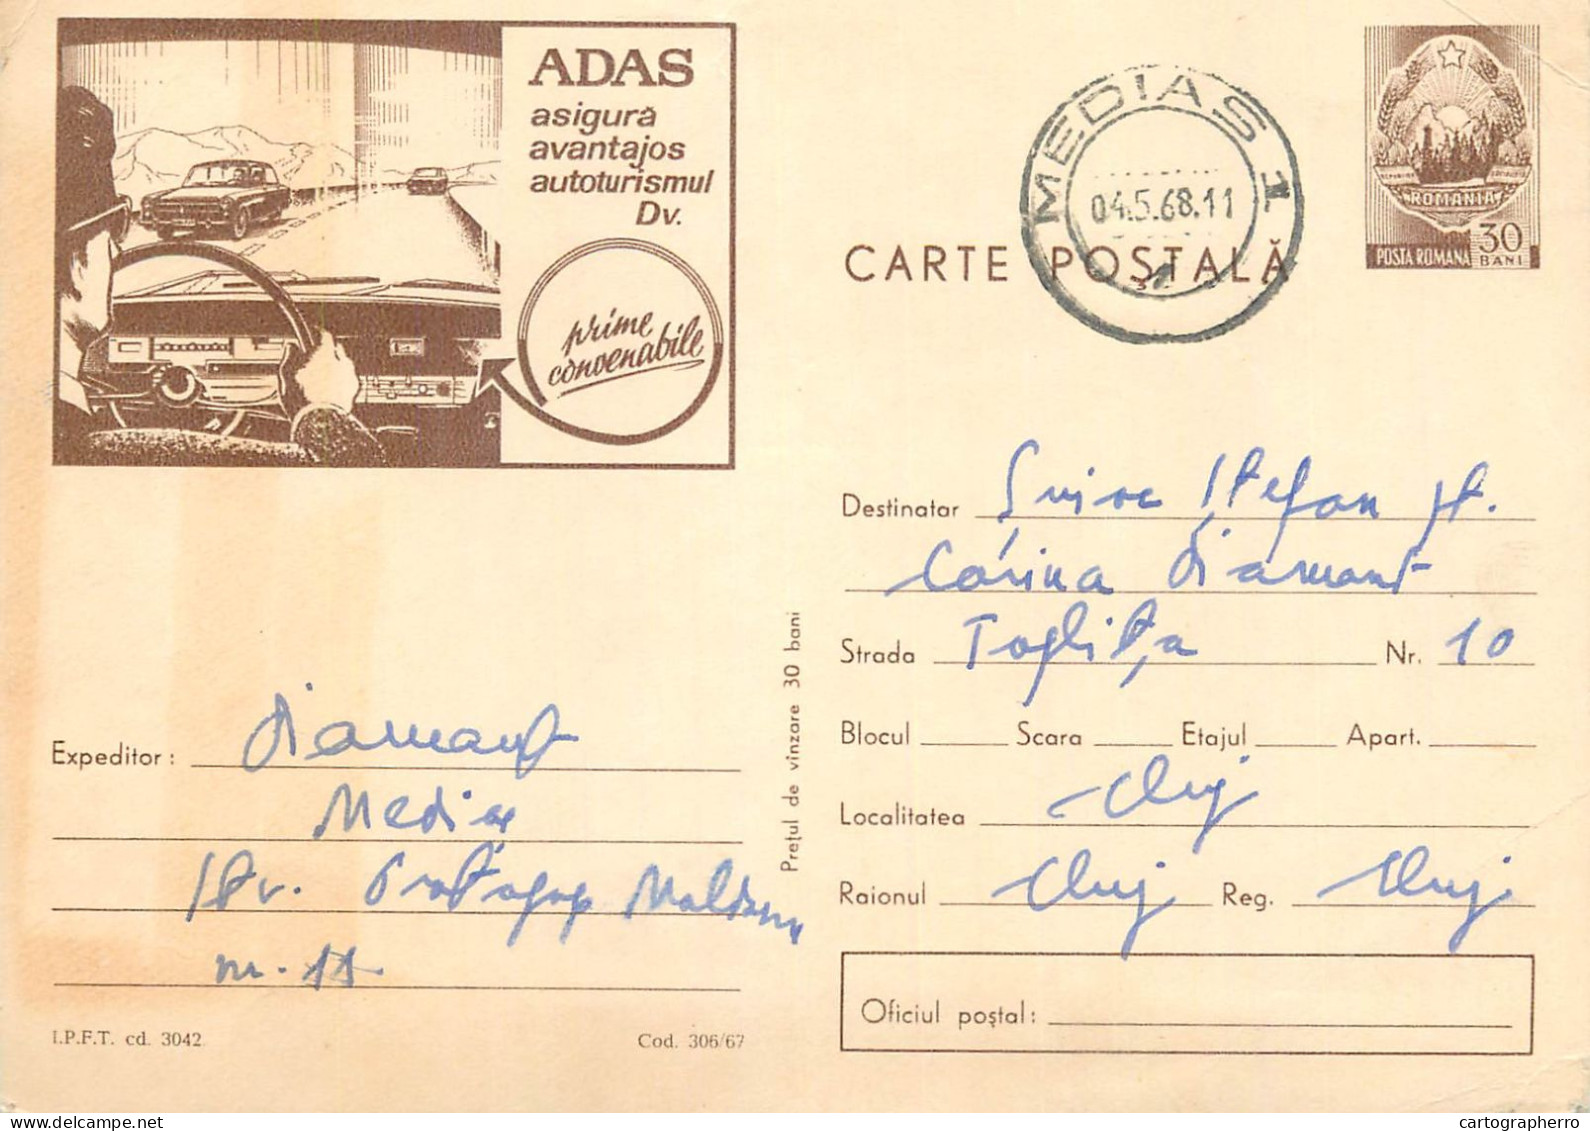 ADAS
asigură
avantajos
autoturismul
Dv.
prime
convenabile
CARTE POȘTALĂ
MEDIAS 1
04.5.68.11
ROMANIA
POSTA ROMANA 30
BANI
Destinatar Ștefan
Diamant
Strada Toplița Nr. 10
Blocul Scara Etajul Apart.
Localitatea Cluj
Raionul Cluj Reg. Cluj
Oficiul poștal:
Prețul de vînzare 30 bani
Expeditor: Diamant
Mediaș
Str. Protopop Moldovan
nr.
I.P.F.T. cd. 3042
Cod. 306/67
delcampe.net
cartographerro